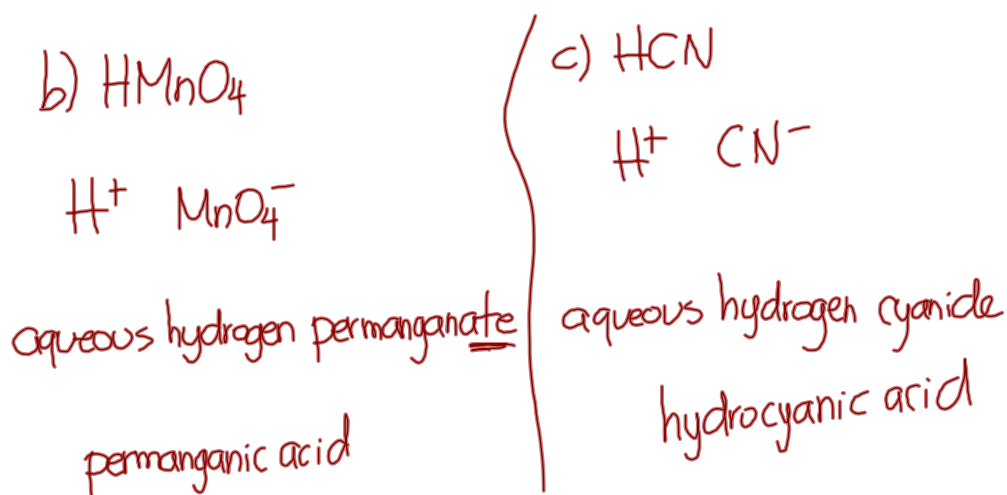 b) HMnO₄
H⁺ MnO₄⁻
aqueous hydrogen permanganate
permanganic acid
c) HCN
H⁺ CN⁻
aqueous hydrogen cyanide
hydrocyanic acid